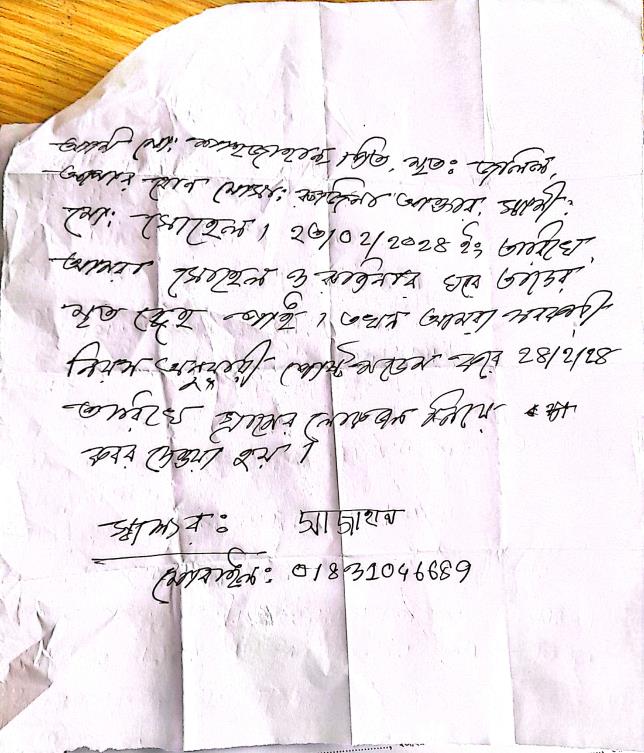 আমি মো: শাহজাহান, পিতা, মৃত: জলিল,
আমার বোন মোসা: ফাতেমা আক্তার, স্বামী:
মো: সোহেল । ২৩/০২/২০২৪ ইং তারিখে,
আমরা সোহেল ও ফাতেমার ঘরে তাদের
মৃত দেহ পাই । তখন আমরা সরকারী
নিয়ম অনুযায়ী পোষ্টমর্ডেম করে ২৪/২/২৪
তারিখে গ্রামের লোকজন নিয়ে
কবর দেওয়া হয় ।
স্বাক্ষর : সাজাহান
মোবাইল: 01831046689